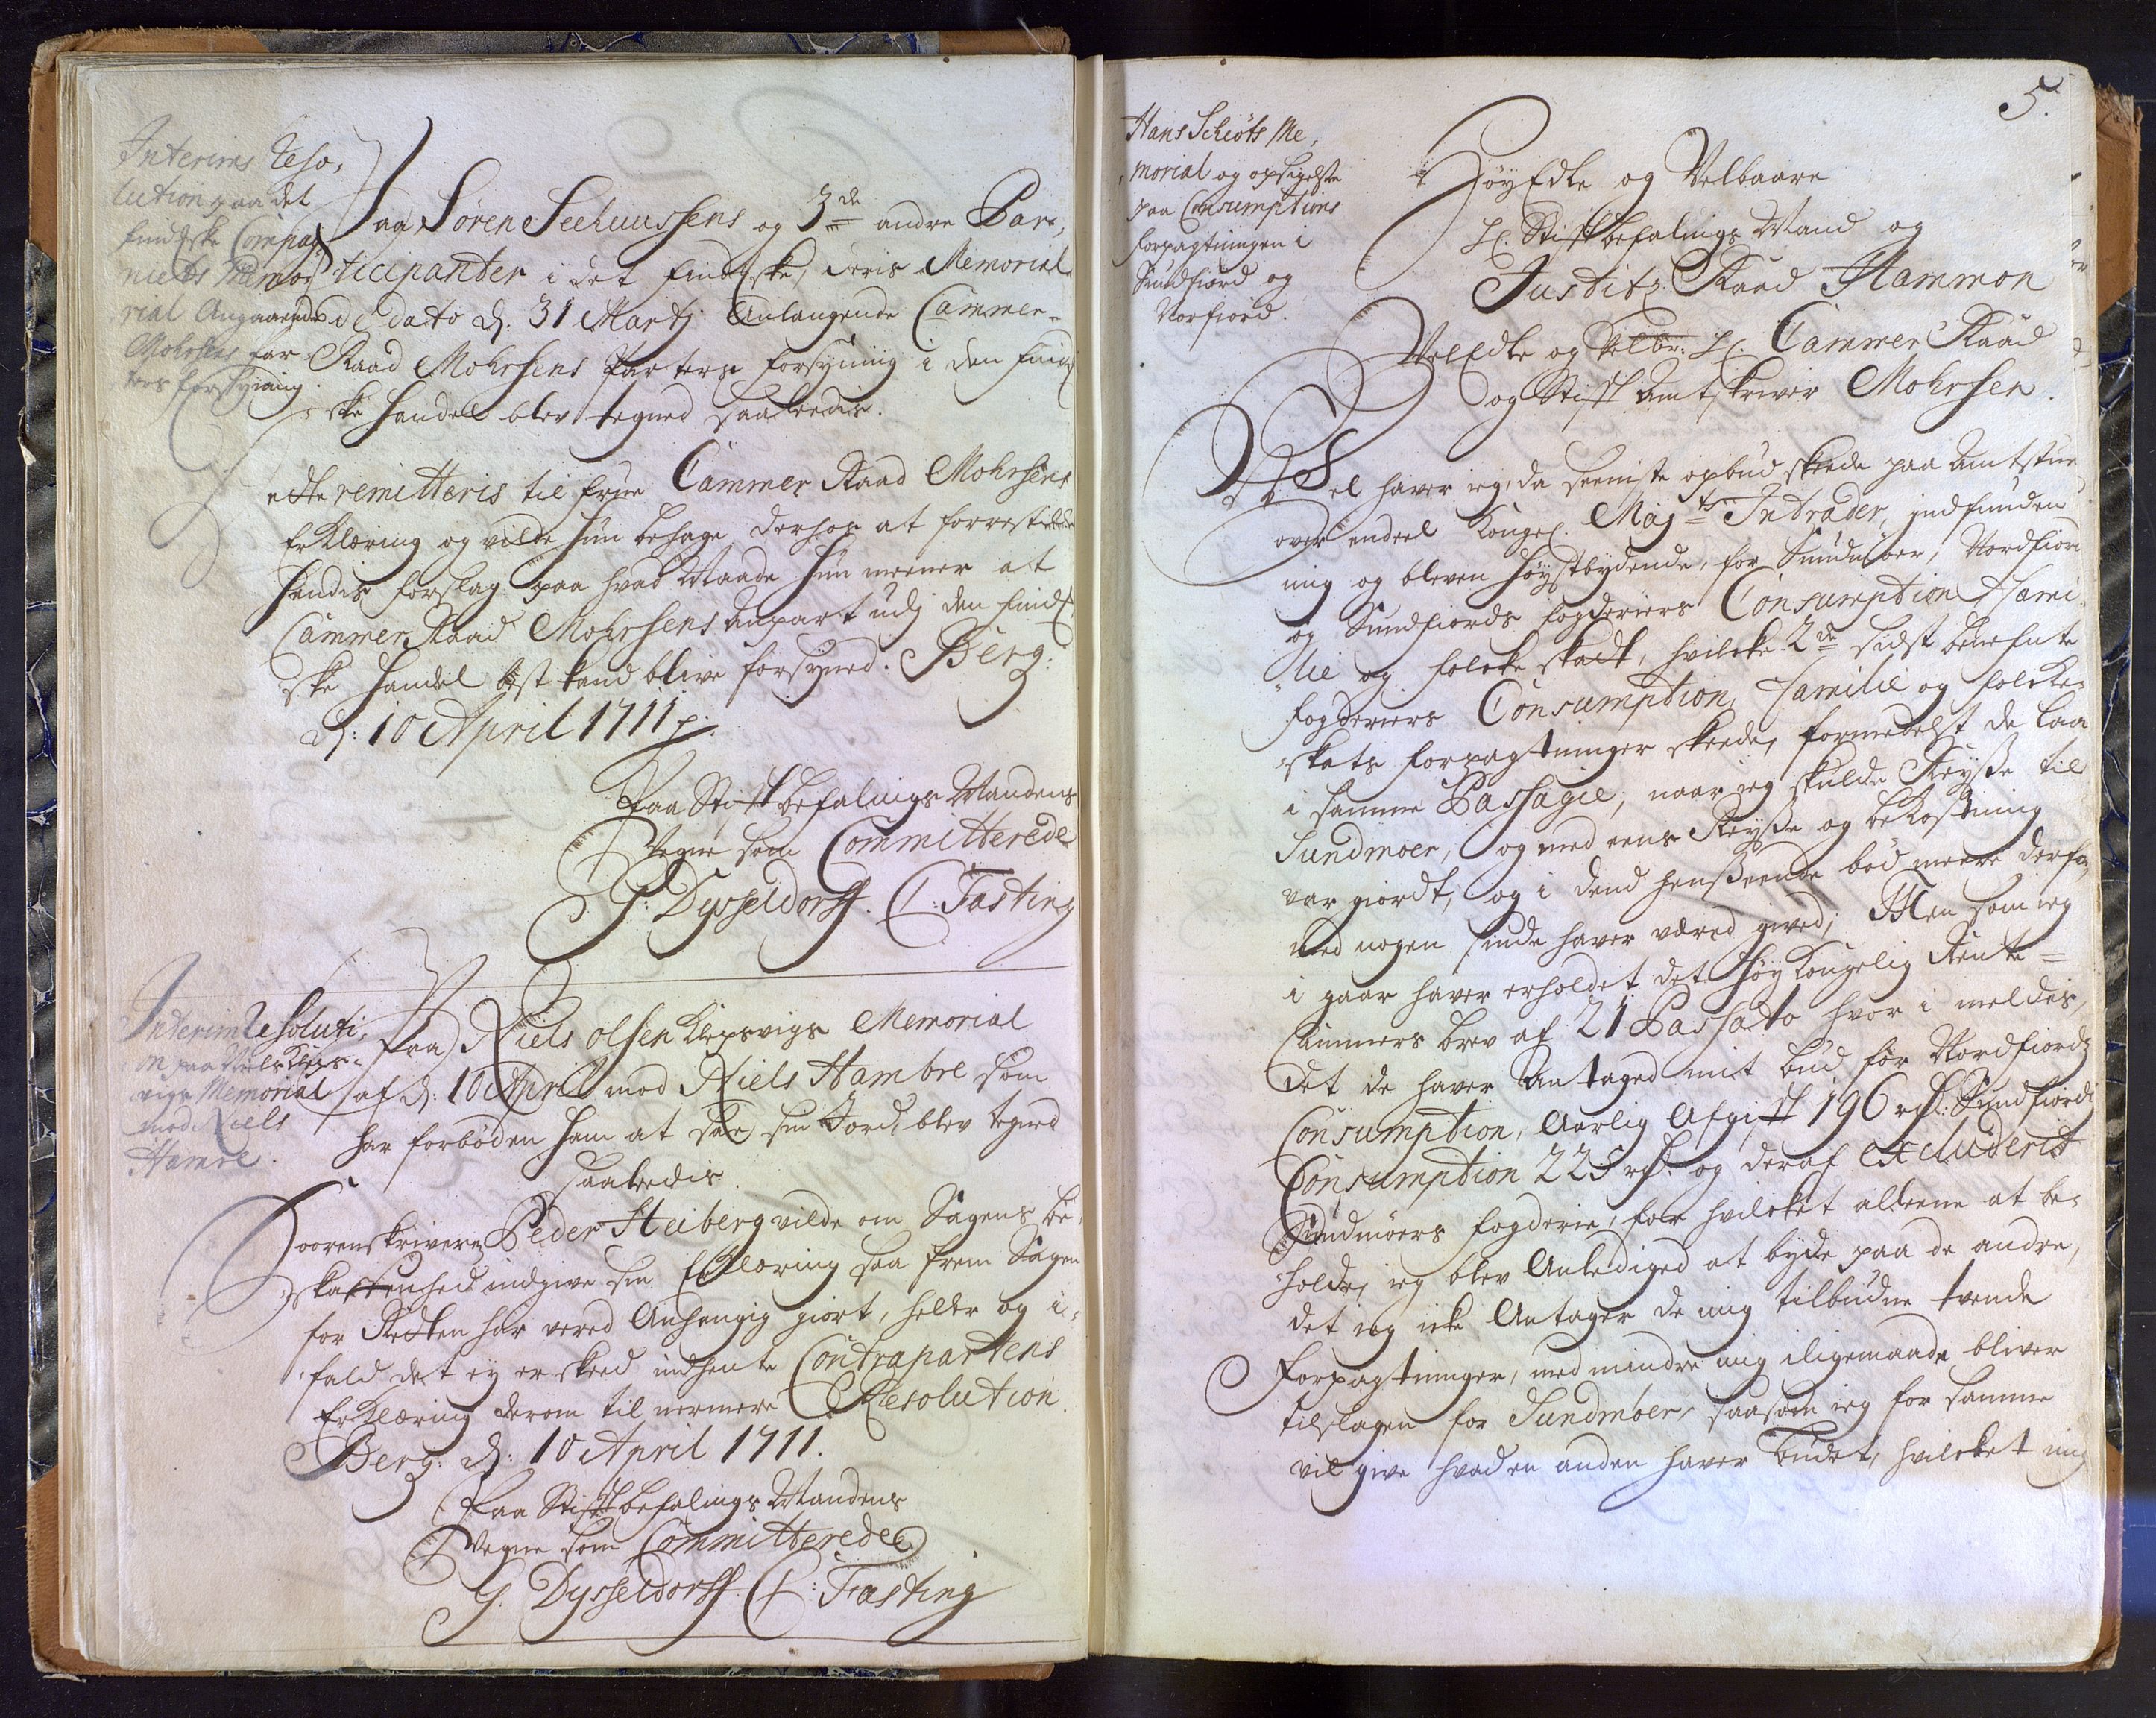 Interims Reso,
lution paa det
findtske Compag
niets Memo,
rial Angaaende
Mohrsens par
ters forsyning.
Paa Søren Seehuussens og 3de andre Par,
ticipanter i det findtske, deris Memorial
de dato d: 31 Martj Anlangende Cammer-
Raad Mohrsens Parters forsyning i den find
ske handel blev tegned saaledis.
Dette remitteris til frue Cammer Raad Mohrsens
Erklæring og vilde hun behage derhos at forrestille
hendis forslag paa hvad Maade hun meener at
Cammer Raad Mohrsens Anpart udj den find
ske handel best kand blive forsyned. Berg:
d: 10 April 1711
Paa Stiftbefalings Mandens
Vegne som Committerede
G: Dysseldorff. C: Fasting
Interim Resoluti,
on paa Niels Kleps-
vigs Memorial
mod Niels
Hamre.
Paa Niels Olsen Klepsvigs Memorial
af d: 10 April mod Niels Hambre som
har forbøden ham at saae sin Jord, blev tegned
saaledis.
Soorenskriveren Peder Heiberg vilde om Sagens be,
skaffenhed indgive sin Erklæring saa frem Sagen
for Retten har vered Anhengig giort, heller og i,
fald det ey er skeed indhente Contrapartens
Erklæring derom til nermere Resolution.
Berg: d: 10 April 1711.
Paa Stiftbefalings Mandens
Vegne som Committerede
G. Dysseldorff. C: Fasting
5.
Hans Schiøts Me,
morial og opsigelse
paa Consumptions
forpagtningen i
Sundfiord og
Norfiord.
HøyEdle og Velbaarne
H. Stiftbefalings Mand og
Justitz Raad Hammon
VelEdle og Velbr: H. Cammer Raad
og Stift Amtskriver Mohrsen.
Vel haver ieg, da seeniste opbud skeede paa Amtstuen
over endeel Kongel. Maj:ts Intrader, indfunden
mig og bleven høystbydende, for Sundmoer, Nordfiord
og Sundfiords fogderiers Consumption Fami
lie og folke skatt, hvilcke 2de sidst benefnte
fogderiers Consumption, Familie og folcke,
skats forpagtninger skeede, formedelst de laa
i samme Passagie, naar ieg skulde Reysse til
Sundmoer, og med eens Reysse og bekostning
var giordt, og i dend henseende bød meere derfor
end nogen sinde haver været gived; Men som ieg
i gaar haver erholdet det Høy Kongelig Rente=
Cammers brev af 21 Passato hvor i meldes,
det de haver Antaged mit bud for Nordfiords
Consumption, Aarlig Afgift 196 rd: Sundfiords
Consumption 225 rd: og deraf excluderet
Sundmøers fogderie, for hvilcket alleene at be,
holde, ieg blev Anlediged at byde paa de andre,
det ieg icke Antager de mig tilbudne tvende
forpagtninger, med mindre mig iligemaade bliver
tilslagen for Sundmoer, saasom ieg for samme
vil give hvad en anden haver budet, hvilcket mig